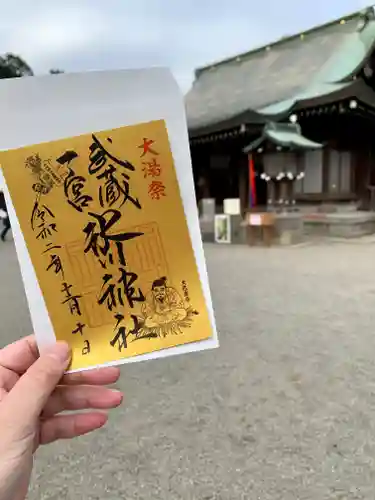 大湯祭
武蔵
一宮
氷川神社
令和二年十二月十日